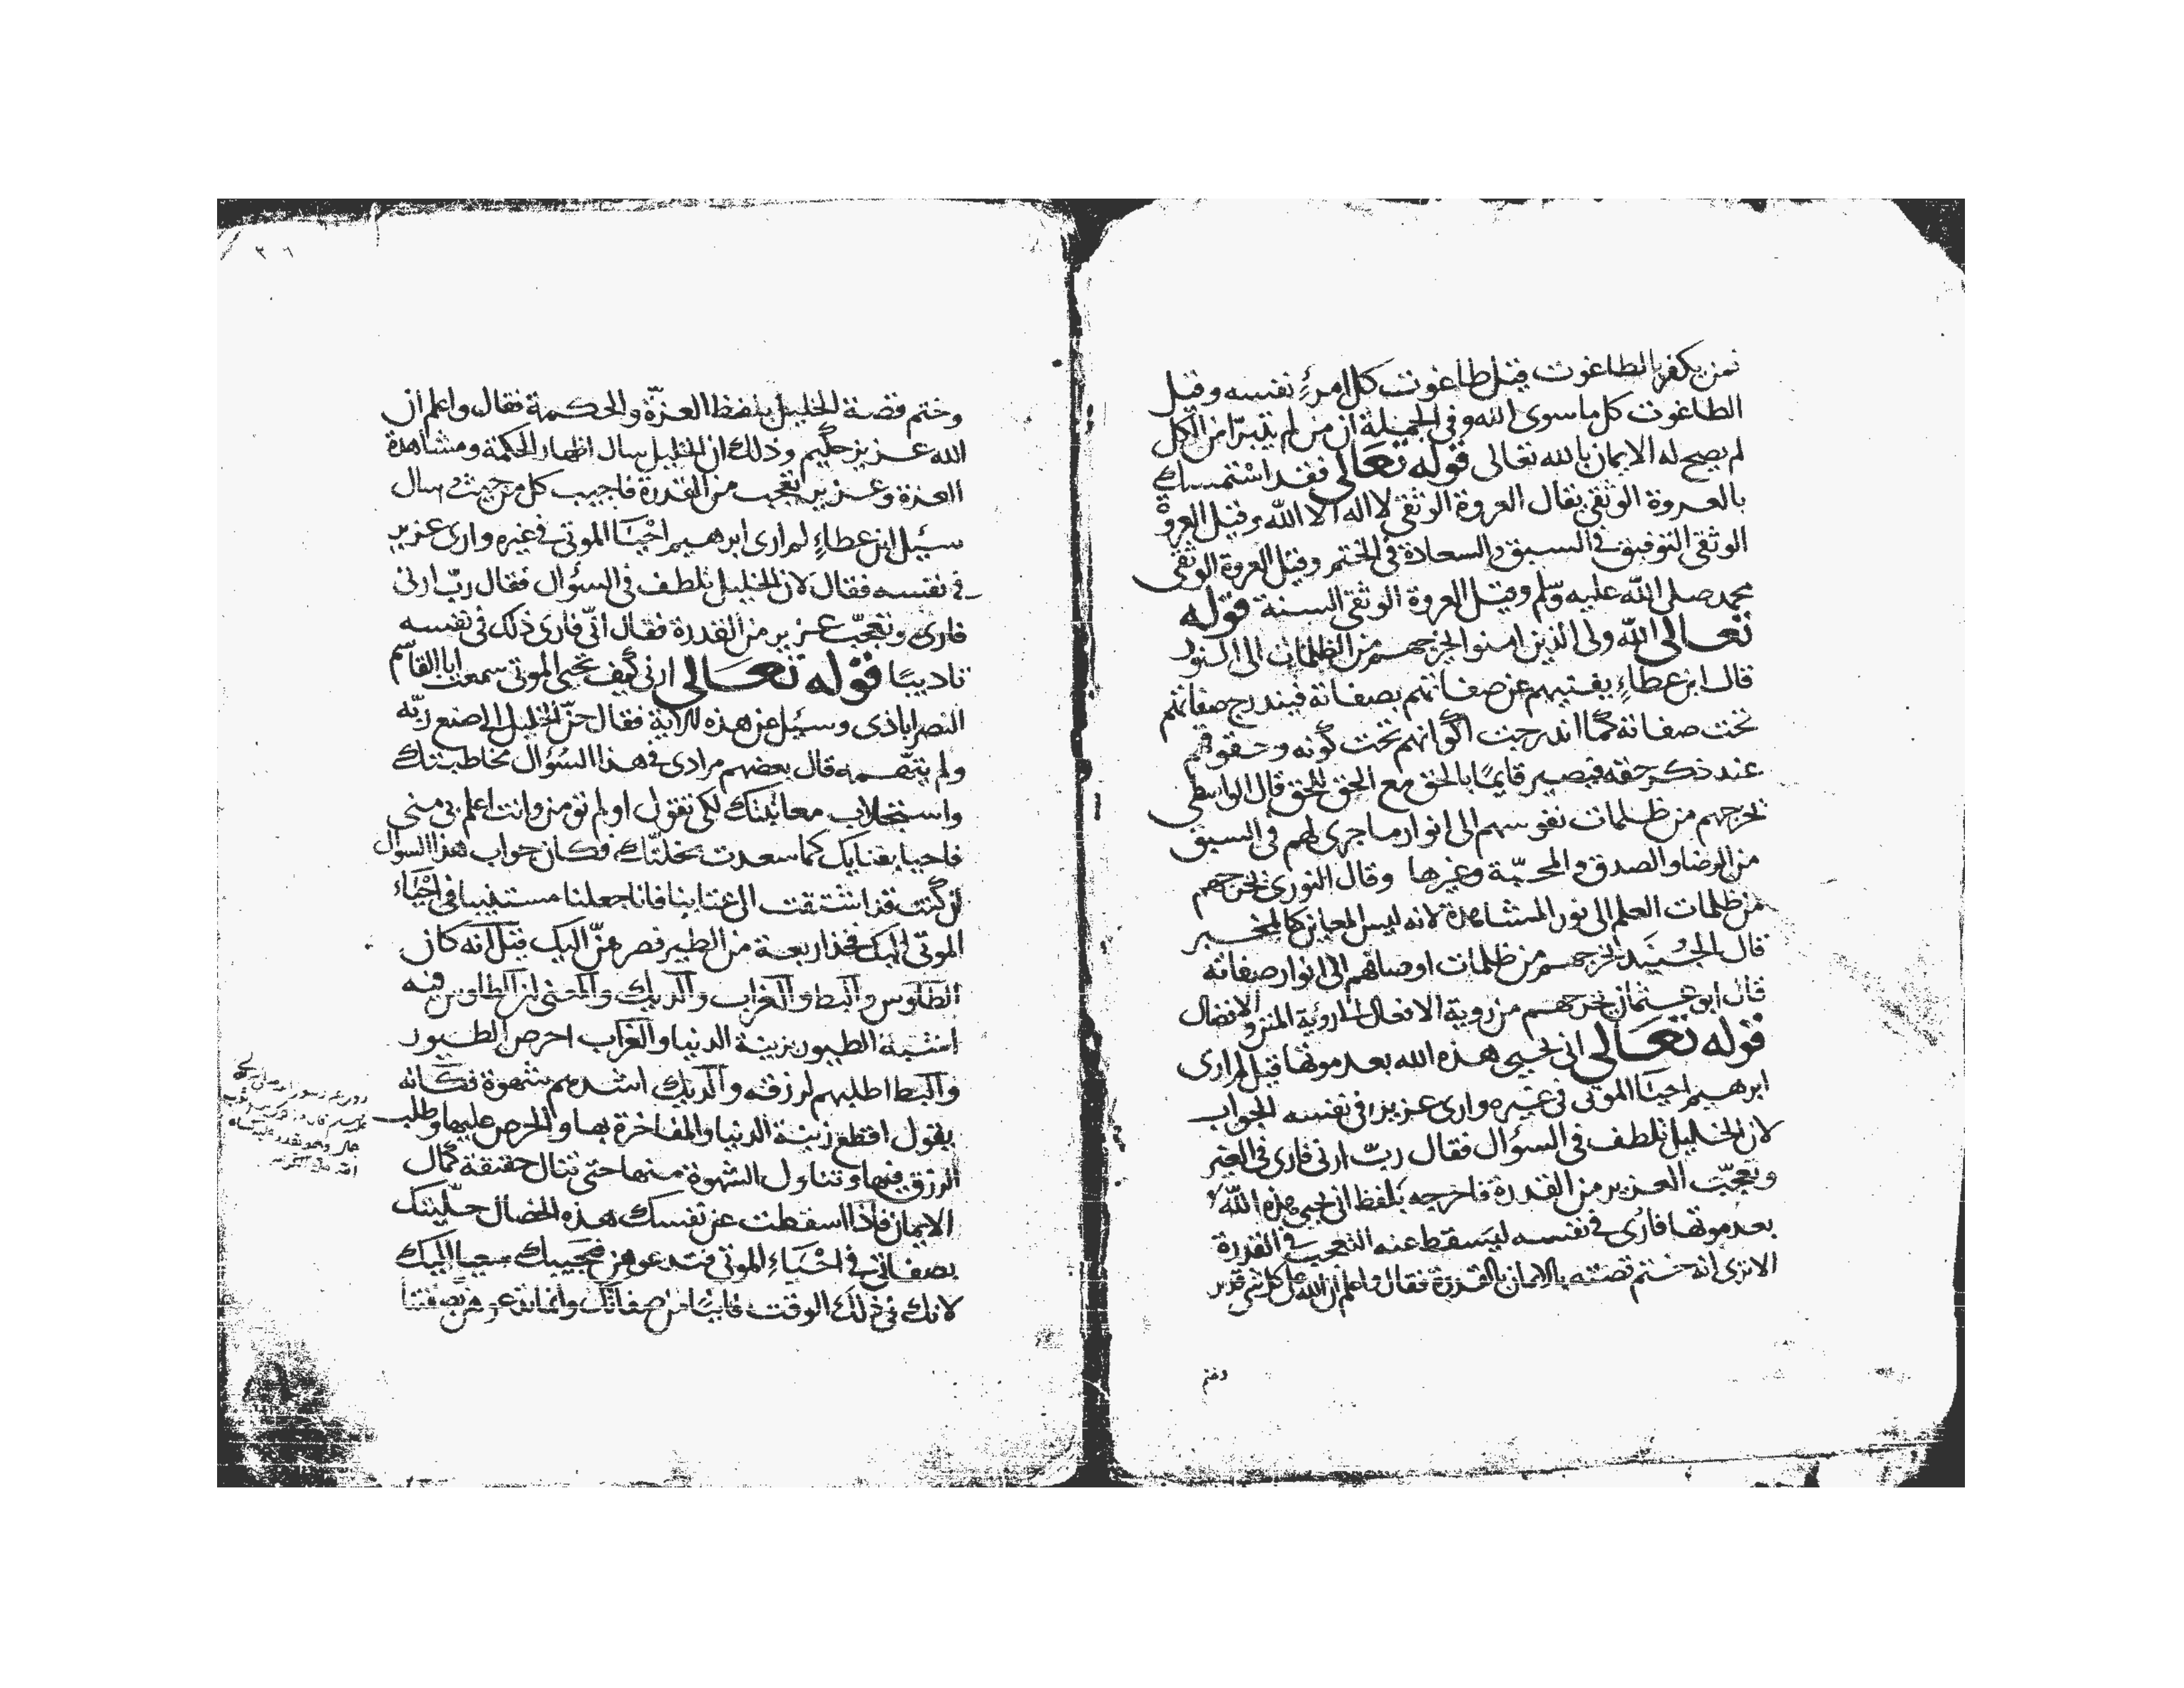 فمن يكفر بالطاغوت قيل طاغوت كل امرءٍ نفسه وقيل
الطاغوت كل ماسوى الله وفى الجملة ان من لم يتبرّا من الكل
لم يصح له الايمان بالله تعالى قوله تعالى فقد استمسك
بالعروة الوثقى يقال العروة الوثقى لا اله الا الله وقيل العروة
الوثقى التوفيق فى السبق والسعادة فى الختم وقيل العروة الوثقى
محمد صلى الله عليه وسلم وقيل العروة الوثقى السنة قوله
تعالى الله ولى الذين امنوا يخرجهم من الظلمات الى النور
قال ابن عطاءٍ يفنيهم عن صفاتهم بصفاته فيندرج صفاتهم
تحت صفاته كما اندرجت اكوانهم تحت كونه وحقوقهم
عند ذكر حقه فيصير قايمًا بالحق مع الحق للحق قال الواسطى
يخرجهم من ظلمات نفوسهم الى انوار ما جرى لهم فى السبق
من الرضا والصدق والمحبّة وغيرها وقال النورى يخرجهم
من ظلمات العلم الى نور المشاهدة لانه ليس المعاين كالمخبر
قال الجُنَيد يخرجهم من ظلمات اوصافهم الى انوار صفاته
قال ابو عثمان يخرجهم من روية الافعال الى روية المنن والافضال
قوله تعالى انى يحيى هذه الله بعد موتها قيل لم ارى
ابرهيم احياءَ الموتى فى غيره وارى عزير فى نفسه الجواب
لان الخليل تلطف فى السؤال فقال ربّ ارنى فارى فى الغير
وتعجّب العزير من القدرة فاخرجه بلفظ انى يحيى هذه الله
بعد موتها فارُى فى نفسه ليسقط عنه التعجب فى القدرة
الا ترى انه ختم قصته بالايمان بالقدرة فقال واعلم ان الله على كل شى قدير
وختم
٣٦
وختم قصة الخليل بلفظ العزّة والحكمة فقال واعلم ان
الله عزيز حكيم وذلك ان الخليل سال اظهار الحكمة ومشاهدة
العزة وعزير تعجب من القدرة فاجيب كل من حيث سال
سيُل ابن عطاءٍ لم ارى ابرهيم احْيَا الموتى فى غيره وارى عزير
فى نفسه فقال لان الخليل تلطف فى السؤال فقال ربّ ارنى
فارى وتعجّب عزير من القدرة فقال انّى فارى ذلك فى نفسه
تاديبًا قوله تعالى ارنى كيف تحيى الموتى سمعت ابا القاسم
النصراباذى وسيُل عن هذه الاية فقال حنّ الخليل الى صنع ربّه
ولم يتّهمه قال بعضهم مرادى فى هذا السؤال مخاطبتك
واستجلاب معاتبتك لكى تقول اولم تؤمن وانت اعلم بى منى
فاحيا بعتابك كما سعدت بخلتّك فكان جواب هذا السوال
ان كنت قد اشتقت الى عتابنا فانا جعلنا مستنيبا فى احْيَاء
الموتى اليك فخذ اربعة من الطير فصرهنّ اليك قيل انه كان
الطاوس والبط والغراب والديك والمعنى ان الطاوس فيه
اشبه الطيور بزينة الدنيا والغراب احرص الطيور
والبط اطلبهم لرزقه والديك اشدهم شهوة فكانه
يقول اقطع زينة الدنيا والمفاخرة بها والحرص عليها وطلب
الرزق فيها وتناول الشهوة منها حتى تنال حقيقة كمال
الايمان فاذا اسقطت عن نفسك هذه الخصال حلّيتك
بصفاتى فى احْيَاءِ الموتى فتدعوهن فيجيبك سعيا اليك
لانك فى ذلك الوقت فانيًا من صفاتك وانما تدعوهن بصفتنا